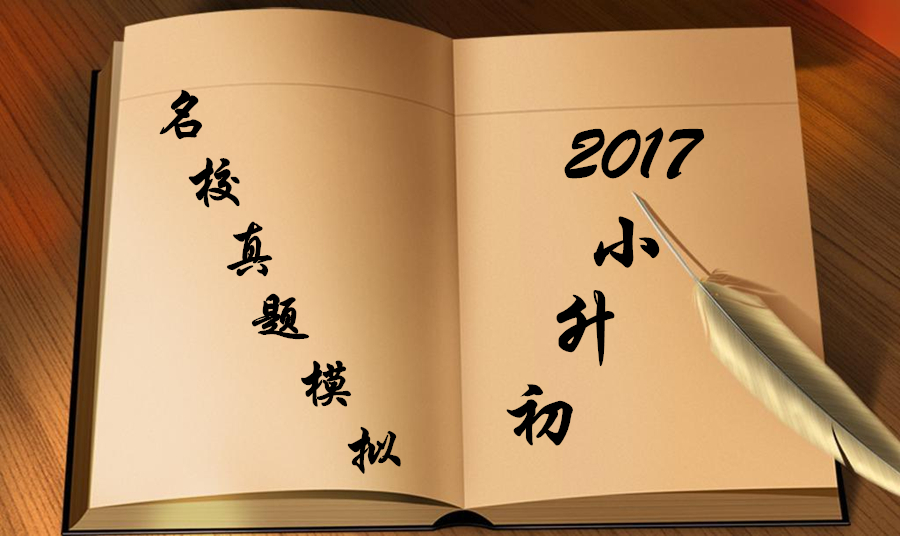 名校真题模拟
2017
小升初